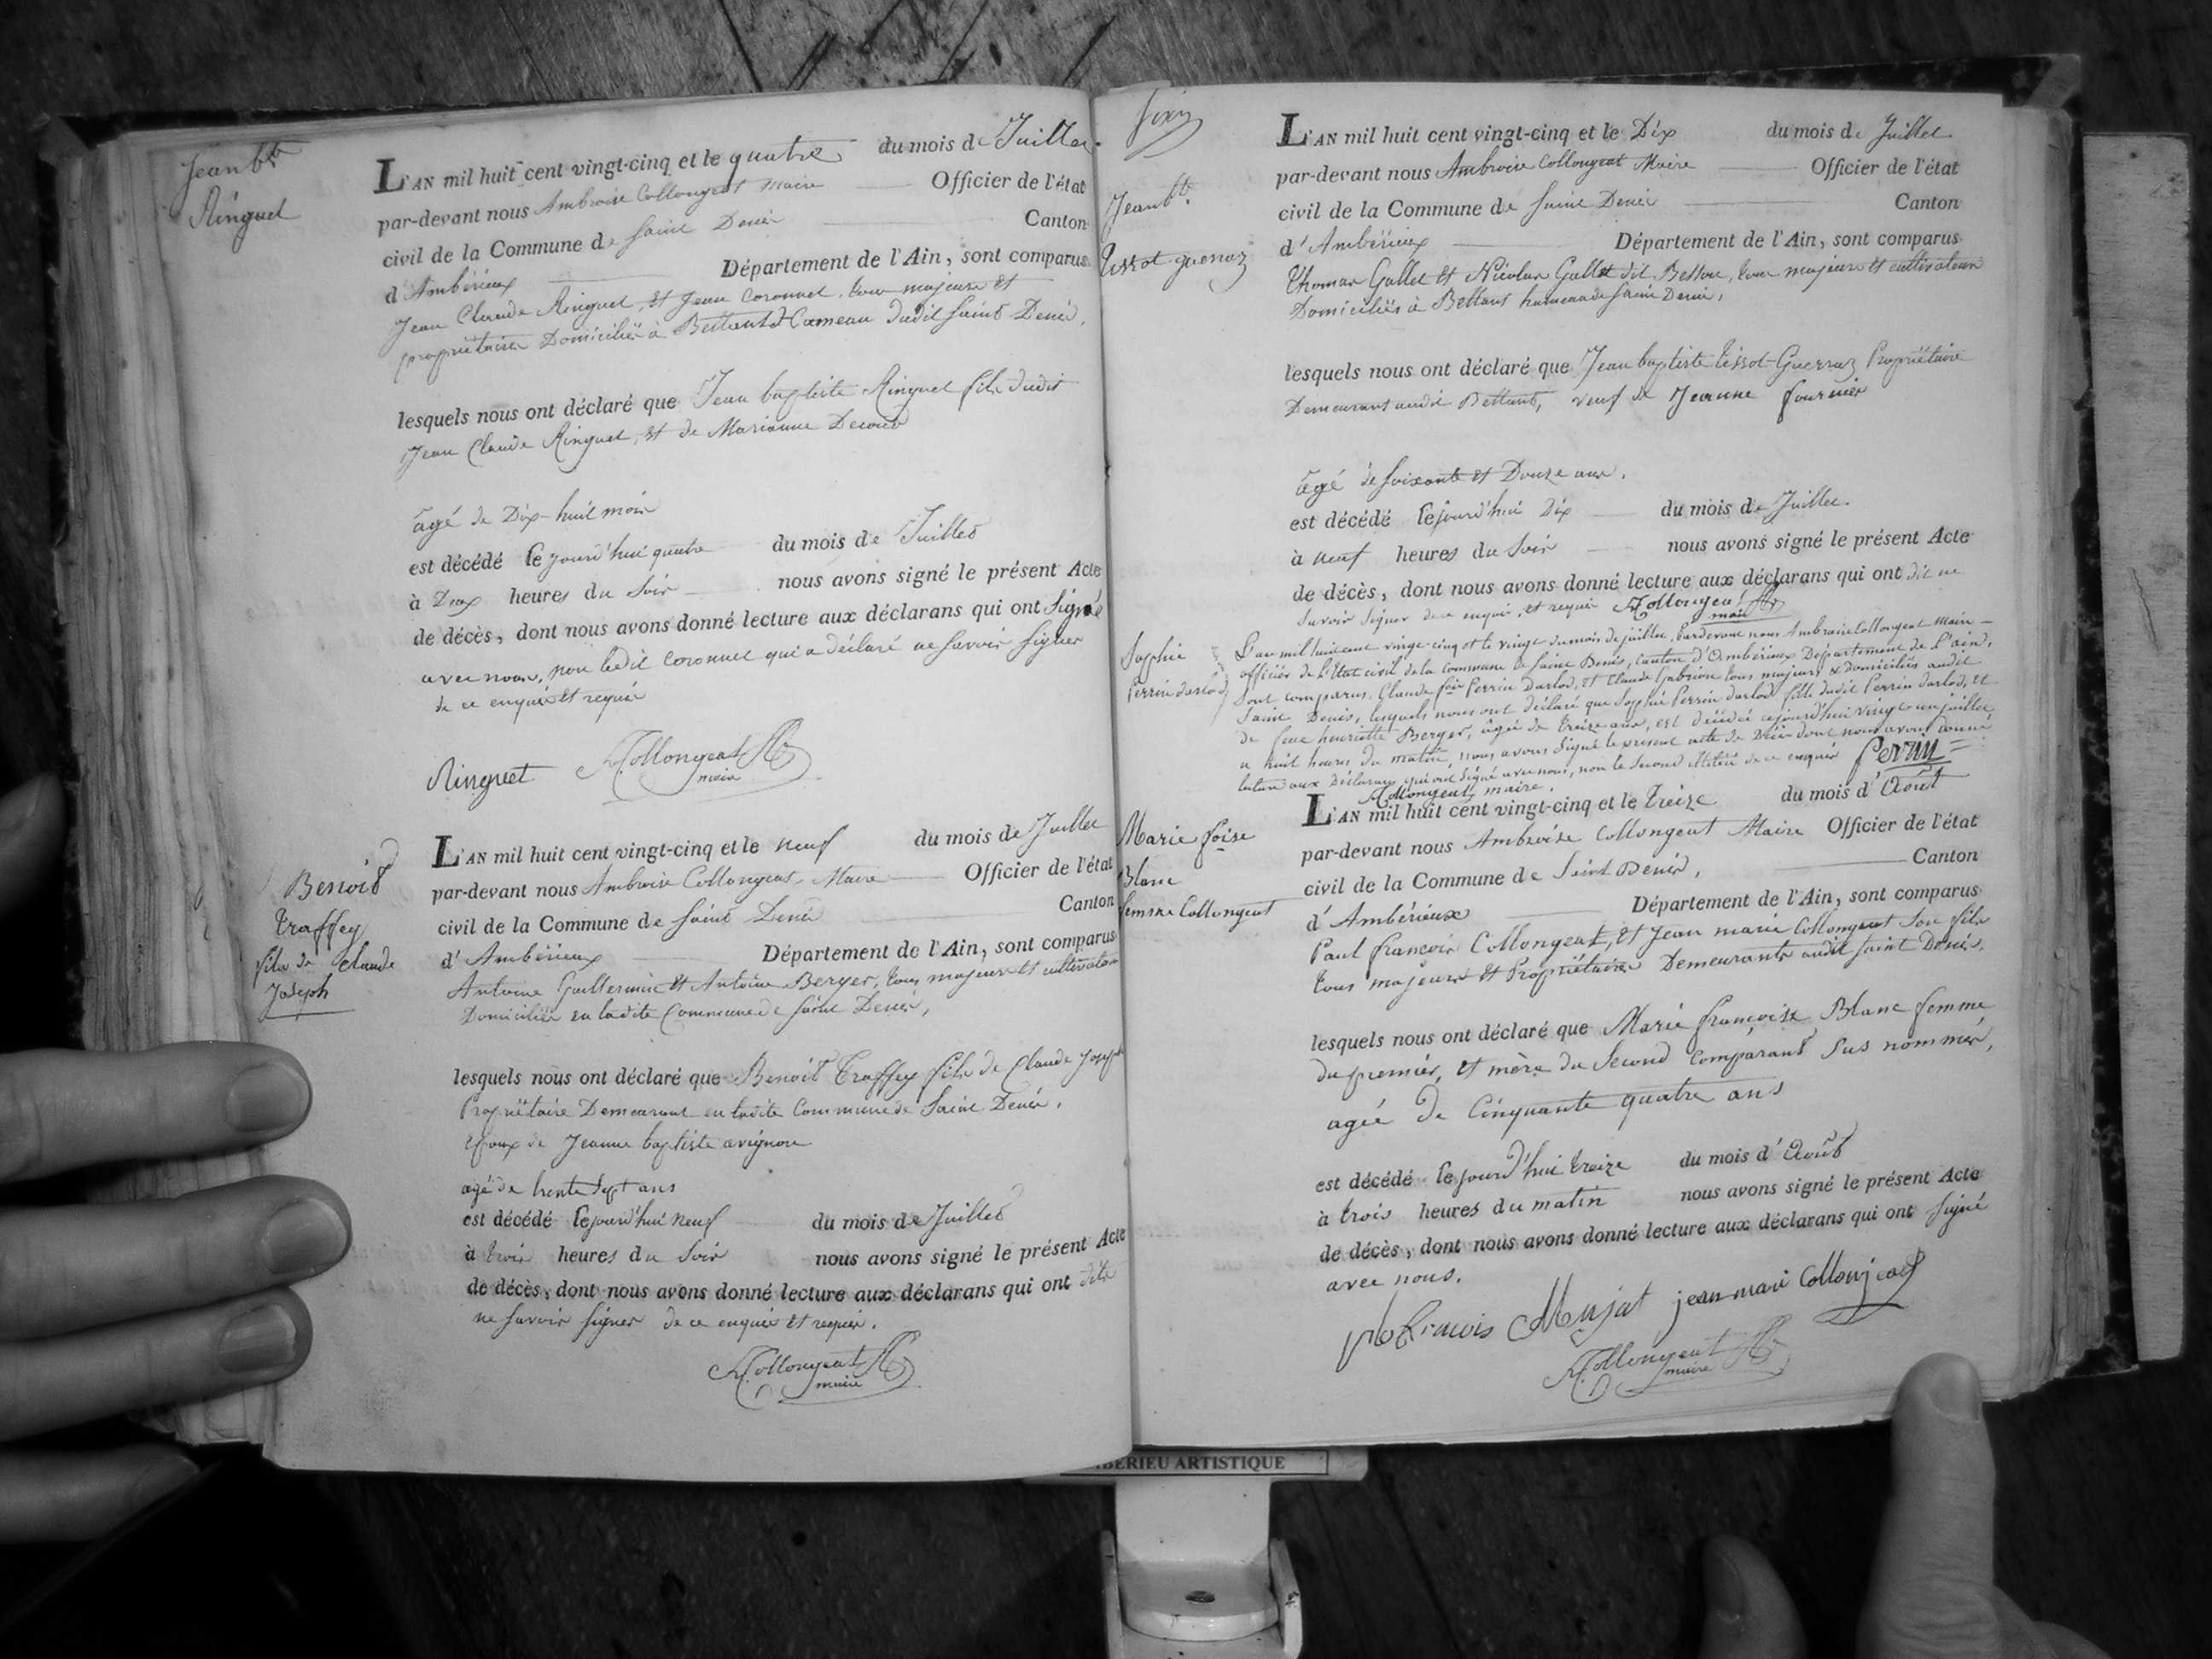 Jean Bte
Ringuet
L'AN mil huit cent vingt-cinq et le quatre du mois de Juillet
par-devant nous Ambroise Collongeat maire Officier de l'état
civil de la Commune de Saint Denis Canton
d'Ambérieux Département de l'Ain, sont comparus
Jean Claude Ringuet, et Jean Coronnel, tous majeurs et
propriétaires Domiciliés à Bettant hameau dudit Saint Denis,
lesquels nous ont déclaré que Jean baptiste Ringuet fils dudit
Jean Claude Ringuet, et de Marianne
âgé de Dix-huit mois
est décédé cejourd'hui quatre du mois de Juillet
à Deux heures du soir nous avons signé le présent Acte
de décès, dont nous avons donné lecture aux déclarans qui ont signé
avec nous, non ledit Coronnel qui a déclaré ne savoir signer
de ce enquis et requis
Ringuet A. Collongeat
maire
Benoit
traffey
fils de Claude
Joseph
L'AN mil huit cent vingt-cinq et le neuf du mois de Juillet
par-devant nous Ambroise Collongeat, Maire Officier de l'état
civil de la Commune de Saint Denis Canton
d'Ambérieux Département de l'Ain, sont comparus
Antoine Guillermin et Antoine Berger, tous majeurs et cultivateurs
Domiciliés en ladite Commune de Saint Denis,
lesquels nous ont déclaré que Benoit Traffey fils de Claude Joseph
Propriétaire Demeurant en ladite Commune de Saint Denis,
Epoux de Jeanne baptiste avignon
agé de trente sept ans
est décédé cejourd'hui neuf du mois de Juillet
à trois heures du soir nous avons signé le présent Acte
de décès, dont nous avons donné lecture aux déclarans qui ont dits
ne savoir signer de ce enquis et requis.
A. Collongeat
maire
Jean Bte
Tissot guerraz
L'AN mil huit cent vingt-cinq et le Dix du mois de Juillet
par-devant nous Ambroise Collongeat Maire Officier de l'état
civil de la Commune de Saint Denis Canton
d'Ambérieux Département de l'Ain, sont comparus
Thomas Gallet et Nicolas Gallet dit Besson, tous majeurs et cultivateurs
Domiciliés à Bettant hameau de Saint Denis,
lesquels nous ont déclaré que Jean baptiste tissot-Guerraz Propriétaire
Demeurant audit Bettant, veuf de Jeanne fournier
âgé de soixante et Douze ans.
est décédé cejourd'hui Dix du mois de Juillet.
à neuf heures du soir nous avons signé le présent Acte
de décès, dont nous avons donné lecture aux déclarans qui ont dit ne
savoir signer de ce enquis, et requis A. Collongeat
maire
Sophie
Perrin darlod
L'an mil huit cent vingt-cinq et le vingt du mois de juillet, Pardevant nous Ambroise Collongeat Maire
officier de l'Etat civil de la commune de Saint Denis, Canton d'Ambérieux Département de l'ain,
sont comparus, Claude fois Perrin Darlod, et Claude Gabrion tous majeurs & domiciliés audit
Saint Denis, lesquels nous ont déclaré que Sophie Perrin darlod fille dudit Perrin darlod, et
de feue henriette Berger, âgée de treize ans, est décédée cejourd'hui vingt un juillet
a huit heures du matin, nous avons signé le présent acte de Décès dont nous avons donné
lecture aux Déclarans qui ont signé avec nous, non le second de ce enquis perrin
A. Collongeat, maire.
Marie foise
Blanc
femme Collongeat
L'AN mil huit cent vingt-cinq et le treize du mois d'Août
par-devant nous Ambroise Collongeat Maire Officier de l'état
civil de la Commune de Saint Denis, Canton
d'Ambérieux Département de l'Ain, sont comparus
Paul françois Collongeat, et Jean marie Collongeat Son fils
tous majeurs et Propriétaires Demeurants audit saint Denis.
lesquels nous ont déclaré que Marie françoise Blanc femme
du premier, et mère du Second Comparant sus nommés,
agée de Cinquante quatre ans
est décédé cejourd'hui treize du mois d'Août
à trois heures du matin nous avons signé le présent Acte
de décès, dont nous avons donné lecture aux déclarans qui ont signé
avec nous.
jean marie Collonjeat
A. Collongeat
maire
BERIEU ARTISTIQUE